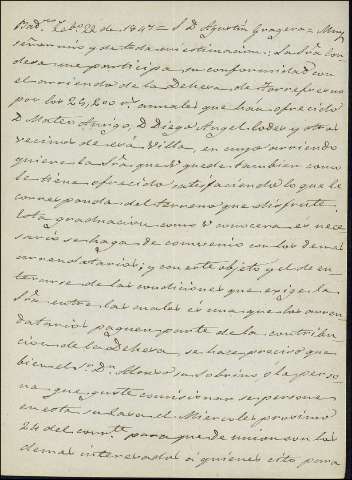 Bad.z Feb.o 22 de 1847 = S. D. Agustin Gragera = Muy
señor mio y de toda mi estimacion: La Sra. Con
desa me participa su conformidad con
el arriendo de la Dehesa de Torrefresno
por los 25,200 r.s anuales que han ofrecido
D. Mateo Amigo, D. Diego Angel Codes y otros
vecinos de esa Villa, en cuyo arriendo
quiere la Sra. que V. quede tambien como
le tiene ofrecido satisfaciendo lo que le
corresponda del terreno que disfrute.
Esta graduacion como V. conocera es nece
sario se haga de convenio con los demas
arrendatarios; y con este objeto y el de en
terarse de las condiciones que exige la
Sra. entre las cuales es una que los arren
datarios paguen parte de la contribu
cion de la Dehesa, se hace preciso que
bien el Sr. D.n Alonso su sobrino o la perso
na que guste comisionar se persone
en esta su casa el Miercoles proximo
24 del corr.te para que de union con los
demas interesados a quienes cito para